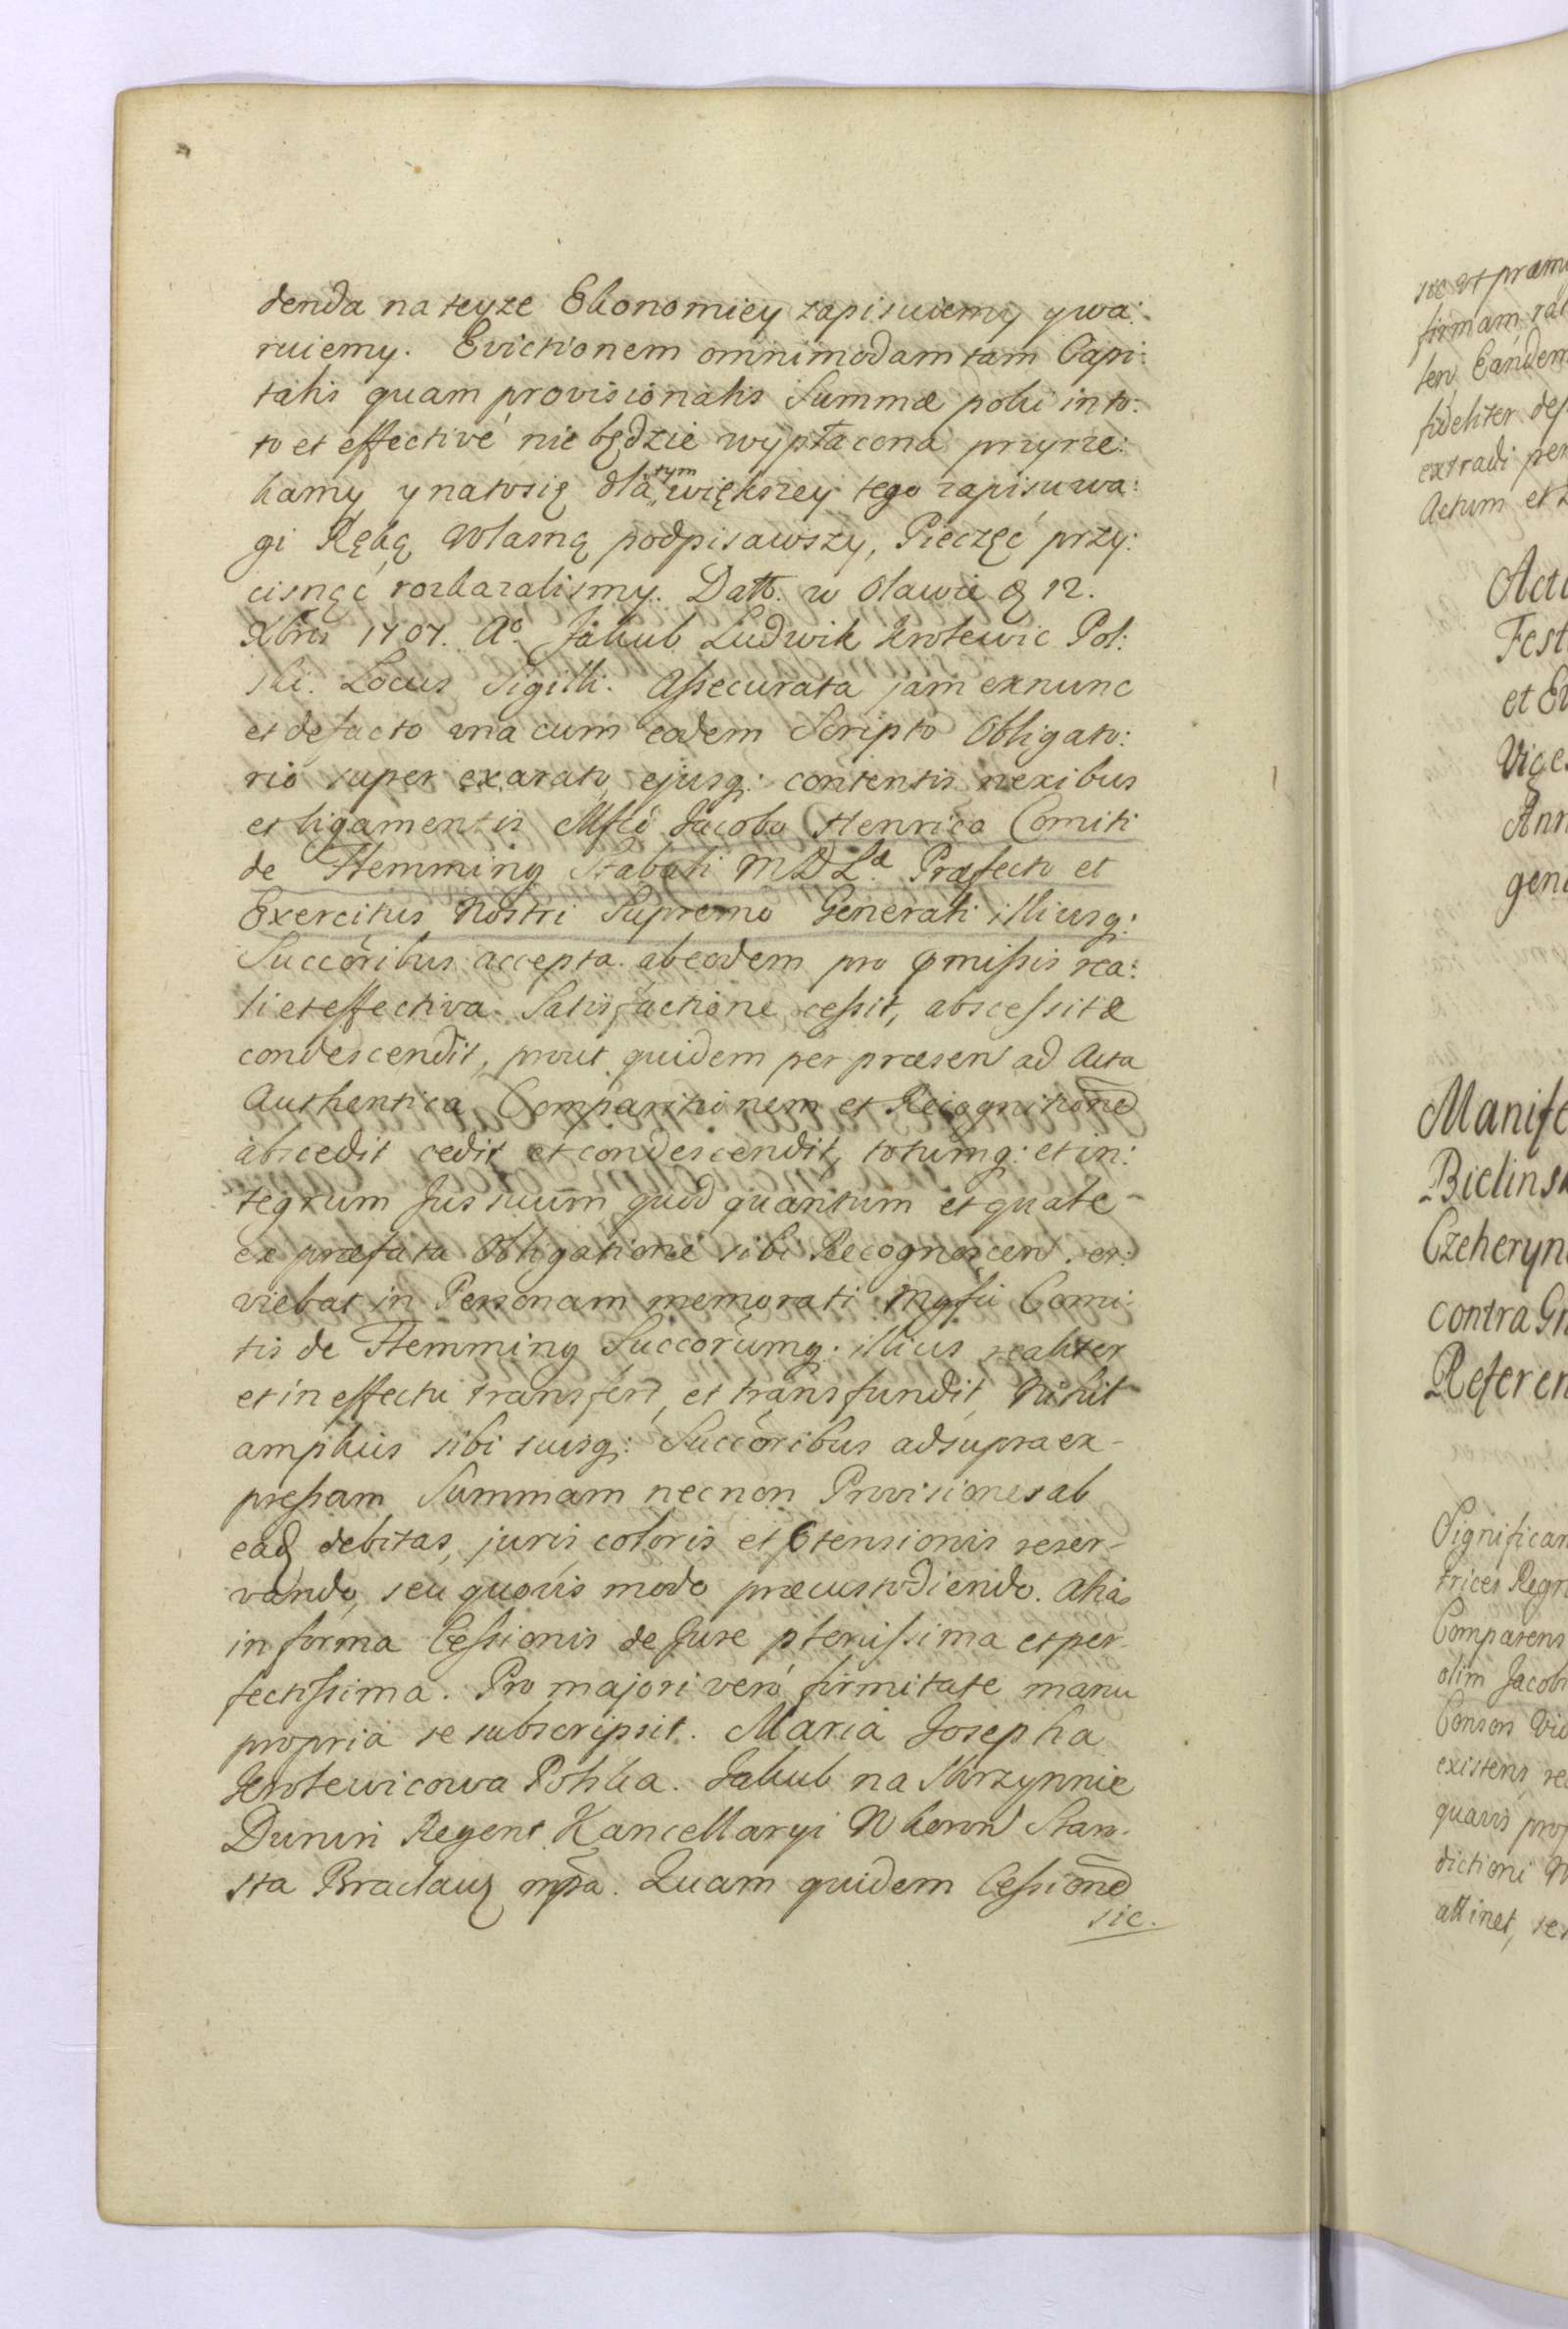 denda na teyze Ekonomiey zapisuiemy y wa:
ruiemy. Evictionem omnimodam tam Capi:
talis quam provisionalis Summæ poki in to:
to et effectivé nie będzie wypłacona przyrze:
kamy y na to się dla tym większey tego zapisu wa:
gi Ręką własną podpisawszy, Pieczęć przy:
cisnąć roskazalismy. Datt. w Olawie d 12.
Xbris 1707. Aº Jakub Ludwik Krolewic Pol:
ski. Locus Sigilli. Assecurata jam ex nunc
et de facto una cum eodem Scripto Obligato:
rio super exarato, ejusq: contentis nexibus
et ligamentis Mfco Jacobo Henrico Comiti
de Flemming Stabuli M D L.æ Præfecto et
Exercitus Nostri Supremo Generali illiusq:
Succoribus accepta ab eodem pro pmissis rea:
li et effectiva Satisfactione cessit, abscessit æ
condescendit, prout quidem per præsen ad Acta
Authentica Comparitionem et Recognitione
abscedit cedit et condescendit, totumq: et in:
tegrum Jus suum quod quantum et quale
ex præfata Obligatione sibi Recognoscen ser:
viebat in Personam memorati Mgfci Comi:
tis de Flemming Succorumq: illius realiter
et in effectu transfert, et transfundit, Nihil
amplius sibi suisq: Succoribus ad supra ex-
pressam Summam necnon Provisiones ab
ead debitas, juris coloris et ptensionis reser-
vando, seu quovis modo præcustodiendo. alias
in forma Cessionis de Jure plenissima et per-
fectissima. Pro majori veró firmitate manu
propria se subscripsit. Maria Josepha
Krolewicowa Polska. Jakub na Skrzynnie
Dunin Regent Kancellaryi W koron Staro-
sta Braclau mpa. Quam quidem Cessione
sic.
sic ut præm
firmam ra
ten Eandem
fideliter des
extradi per
Actum et
Actu
Fest
et
Vige
Ann
geni
Manife
Bielinsk
Czeheryn
contra
Referen
Significan
trices Regn
Comparens
olim Jacob
Consors
existens re
quavis pro
dictioni
attinet, se